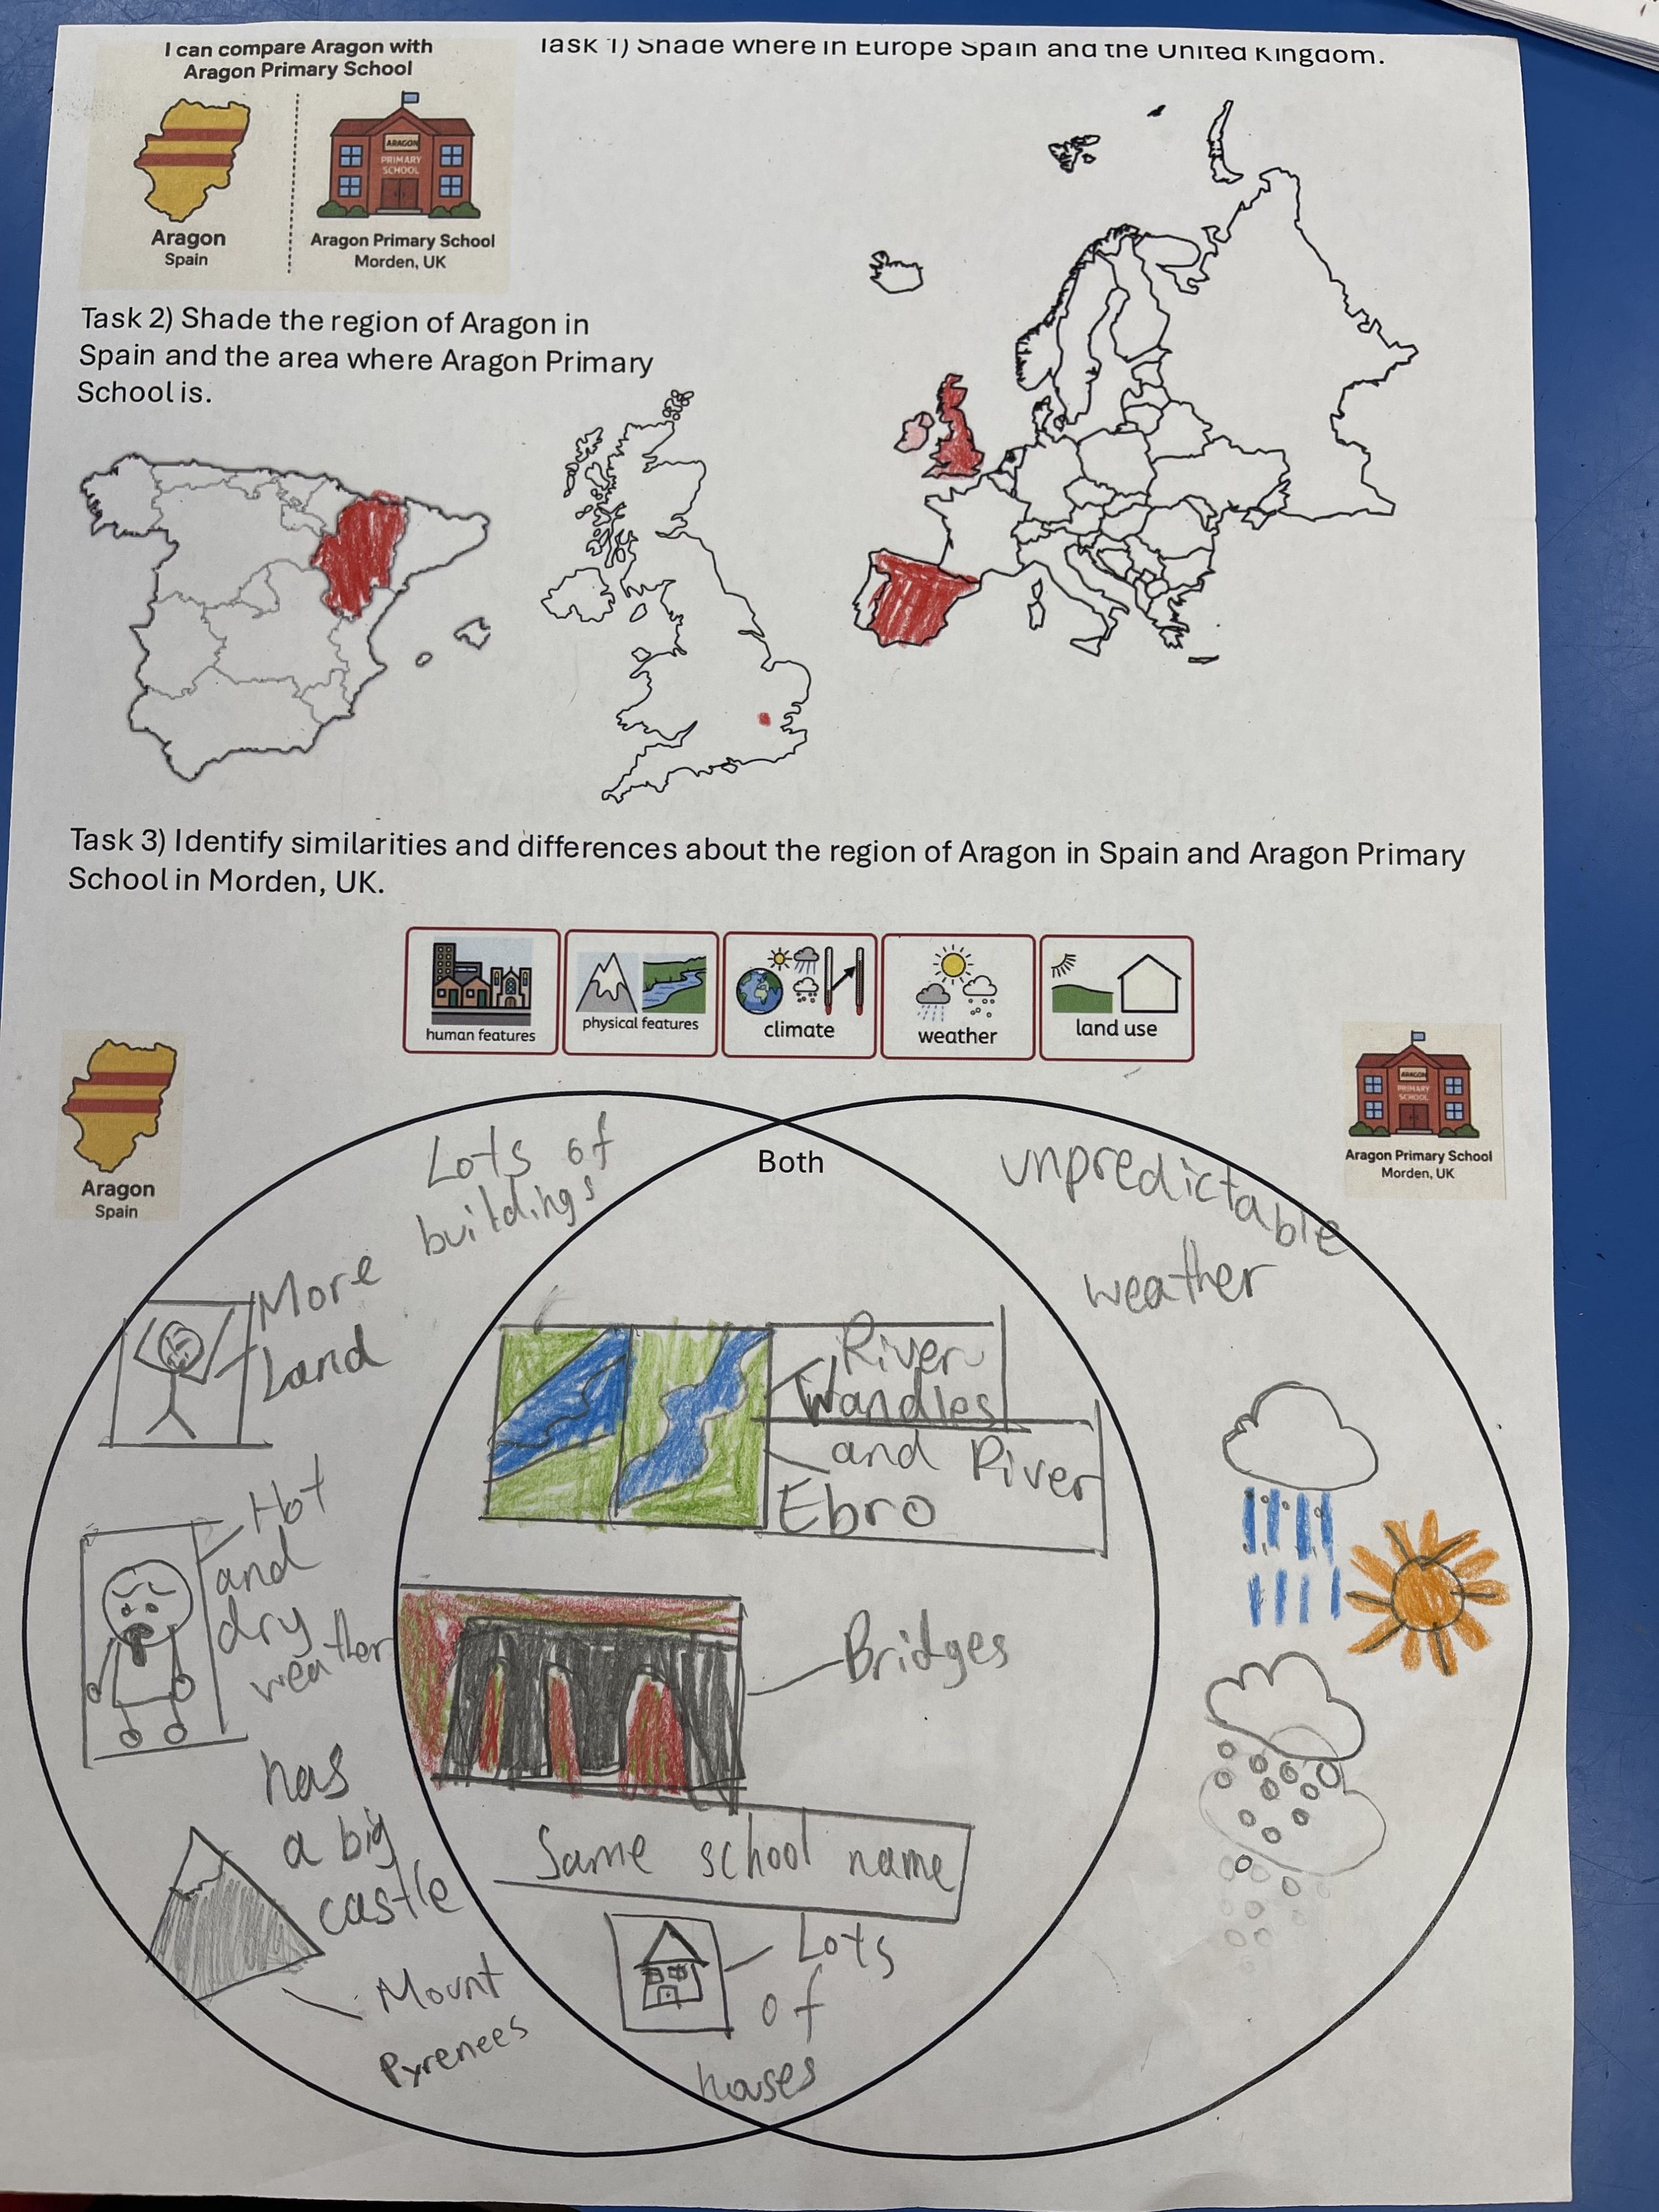 I can compare Aragon with
Aragon Primary School
ARAGON
PRIMARY
SCHOOL
Aragon
Spain
Aragon Primary School
Morden, UK
Task 1) Shade where in Europe Spain and the United Kingdom.
Task 2) Shade the region of Aragon in
Spain and the area where Aragon Primary
School is.
Task 3) Identify similarities and differences about the region of Aragon in Spain and Aragon Primary
School in Morden, UK.
human features
physical features
climate
weather
land use
Aragon
Spain
ARAGON
PRIMARY
SCHOOL
Aragon Primary School
Morden, UK
Lots of
buildings
More
Land
Hot
and
dry
weather
has
a big
castle
Mount
Pyrenees
Both
River
Wandles
and River
Ebro
Bridges
Same school name
Lots
of
houses
unpredictable
weather